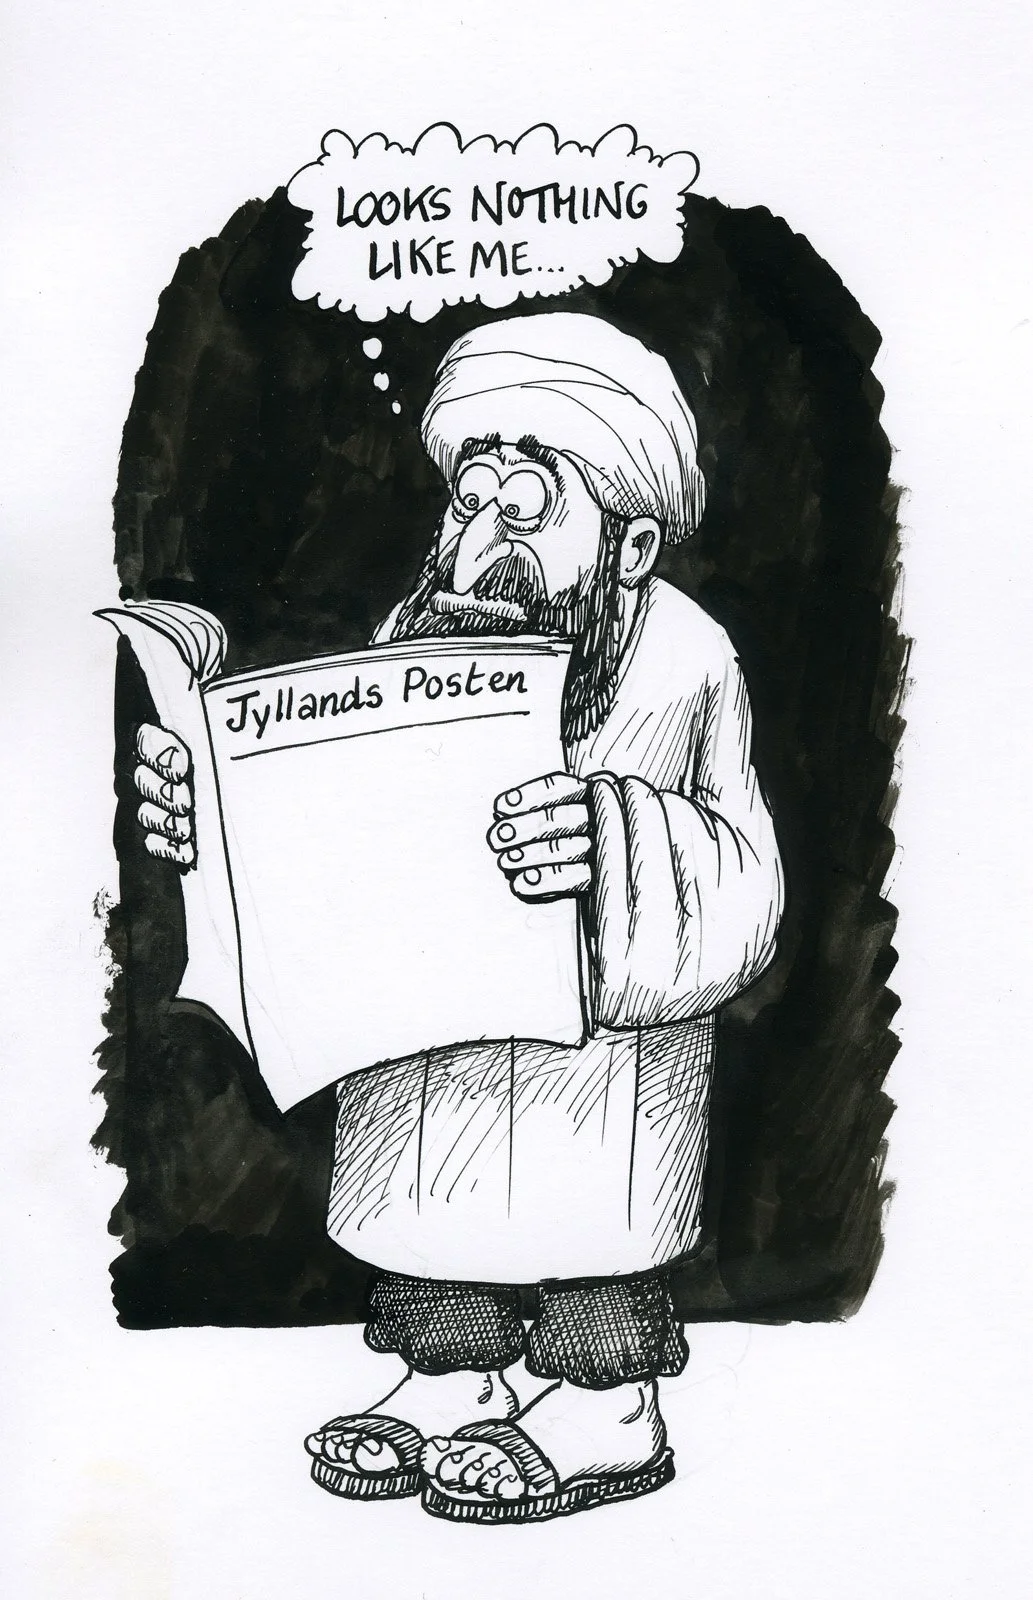 LOOKS NOTHING
LIKE ME...
Jyllands Posten